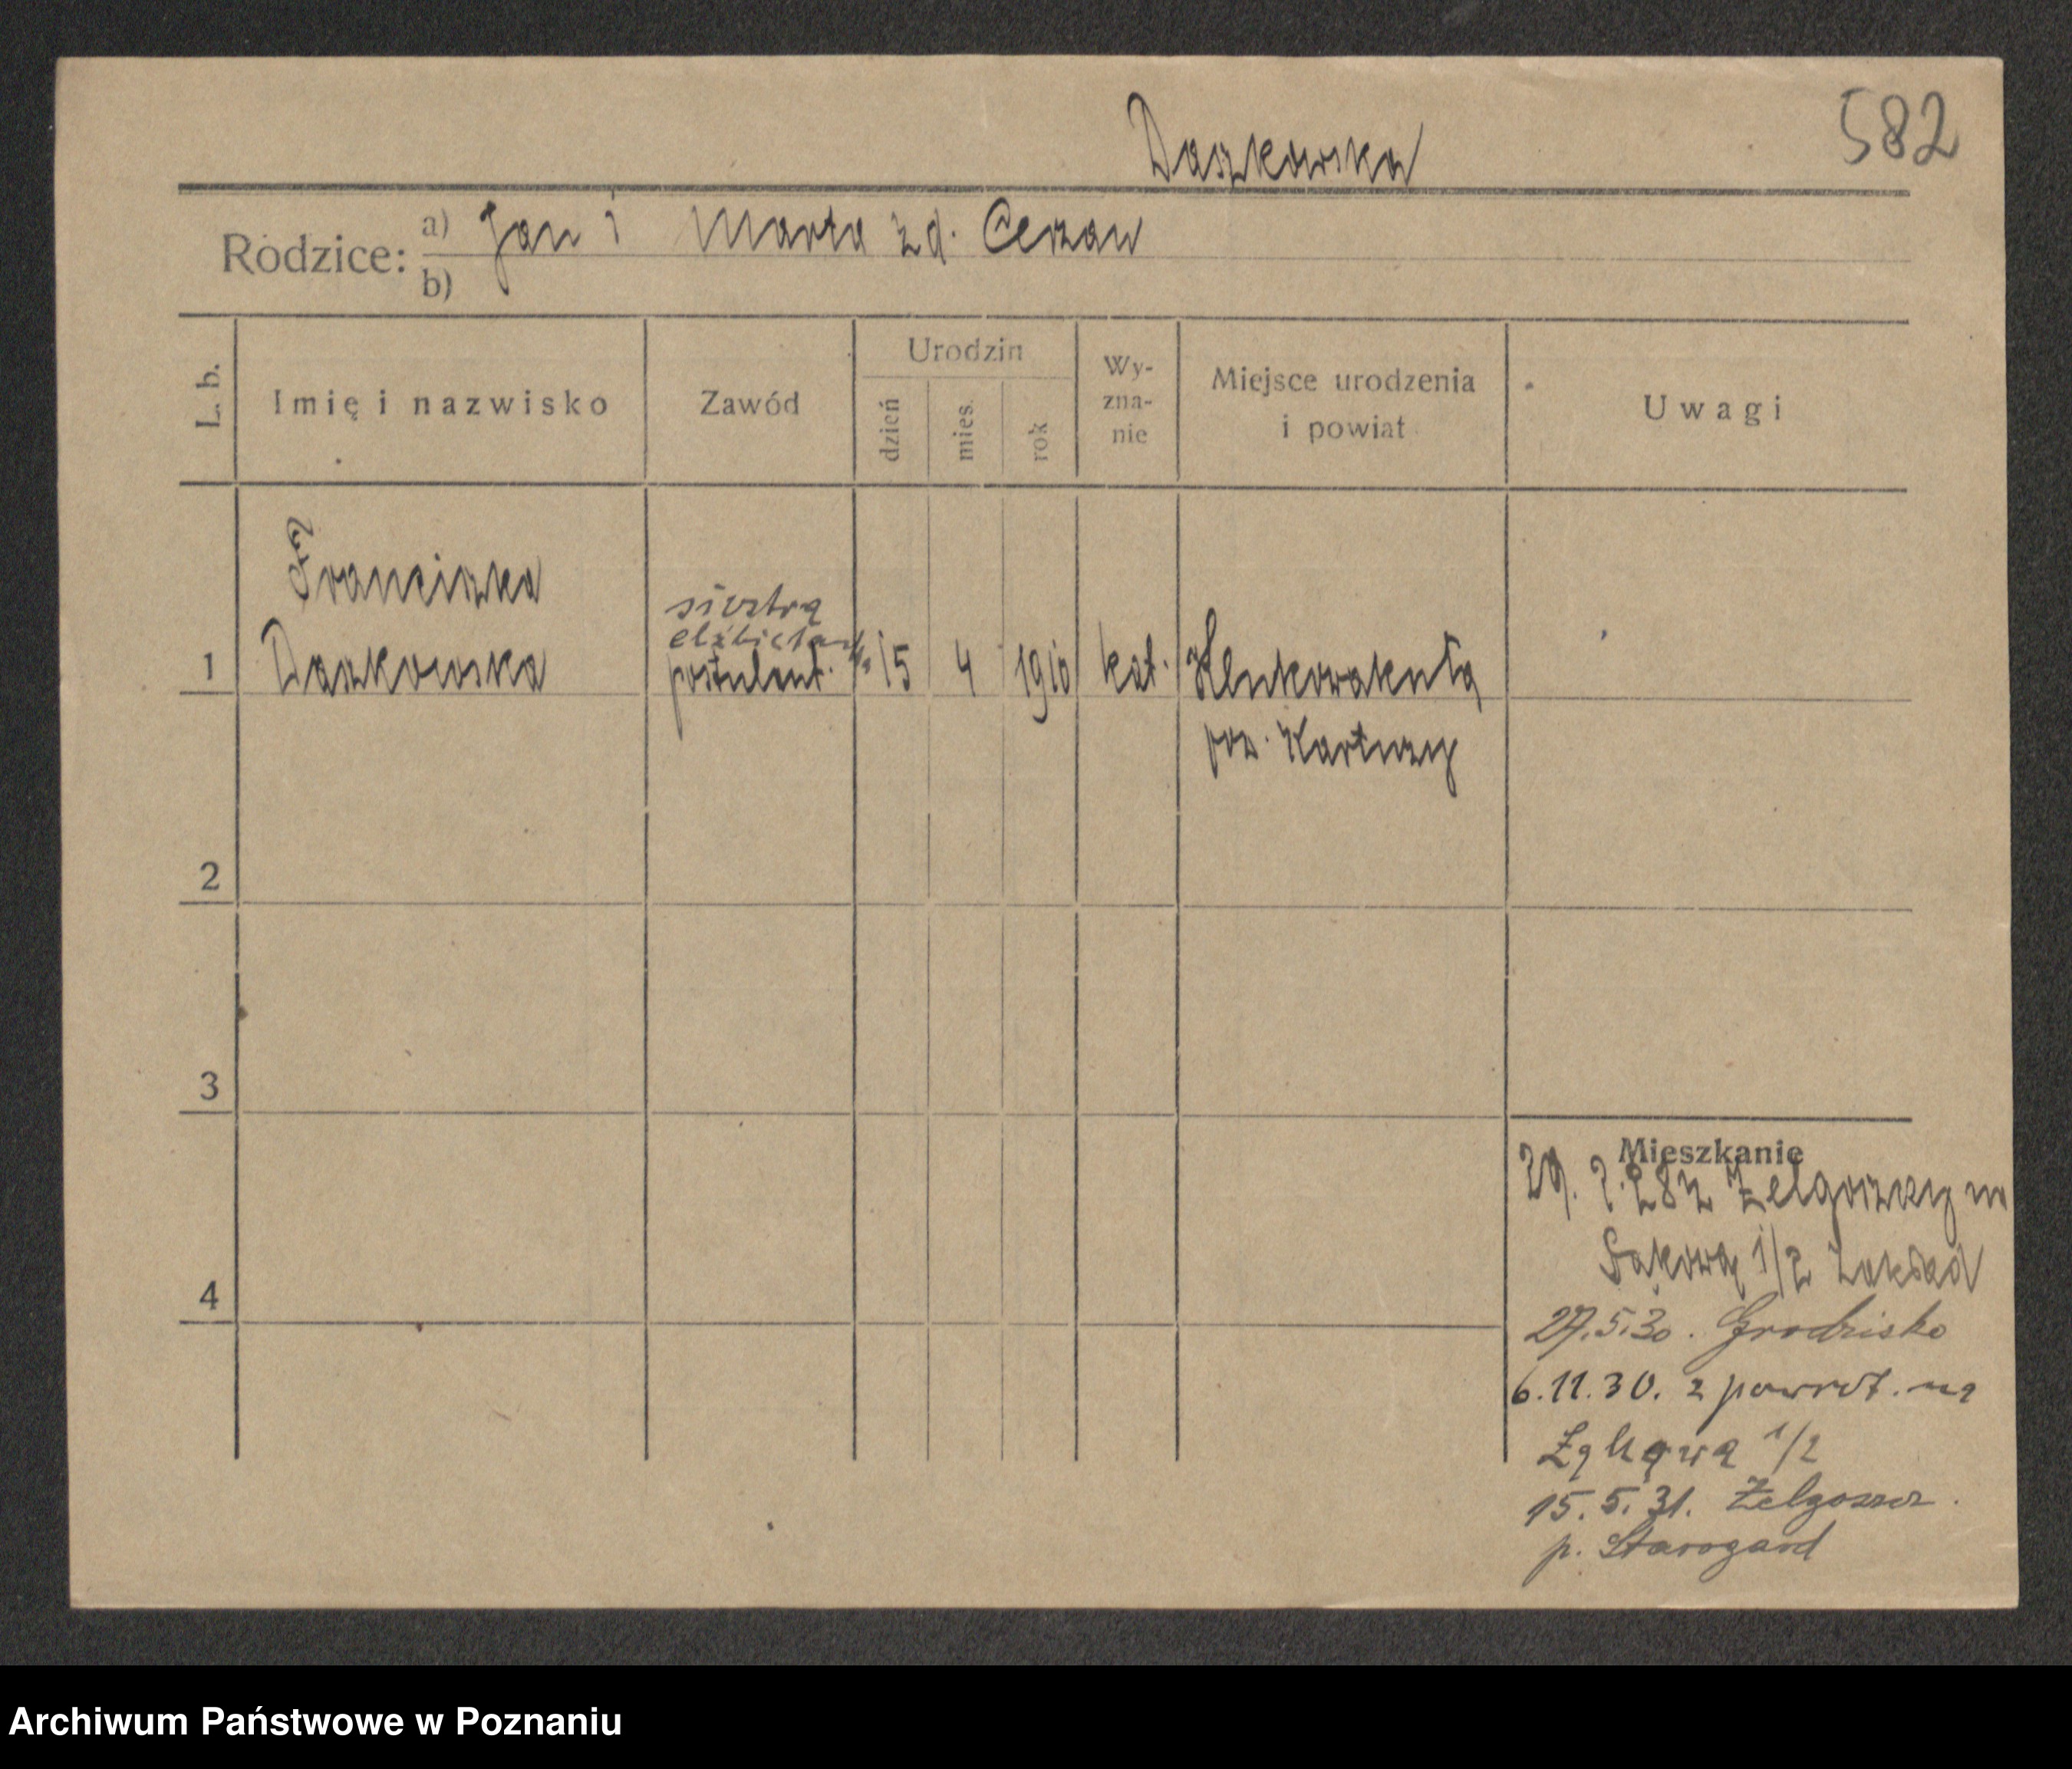 582
Daszkowska
Rodzice: a) Jan i Marta zd. Cerzan
b)
L. b.
Imię i nazwisko
Zawód
Urodzin
dzień
mies.
rok
Wy-
zna-
nie
Miejsce urodzenia
i powiat
Uwagi
Franciszka
siostra
elżbietanka
1 Daszkowska postulent. 15 4 1910 kat.
pow. Kartuzy
2
3
4
Mieszkanie
Łąkową 1/2
27.5.30. Grodzisko
6.11.30. z powrot. na
Łąkową 1/2
15.5.31. Zelgoszcz.
p. Starogard
Archiwum Państwowe w Poznaniu